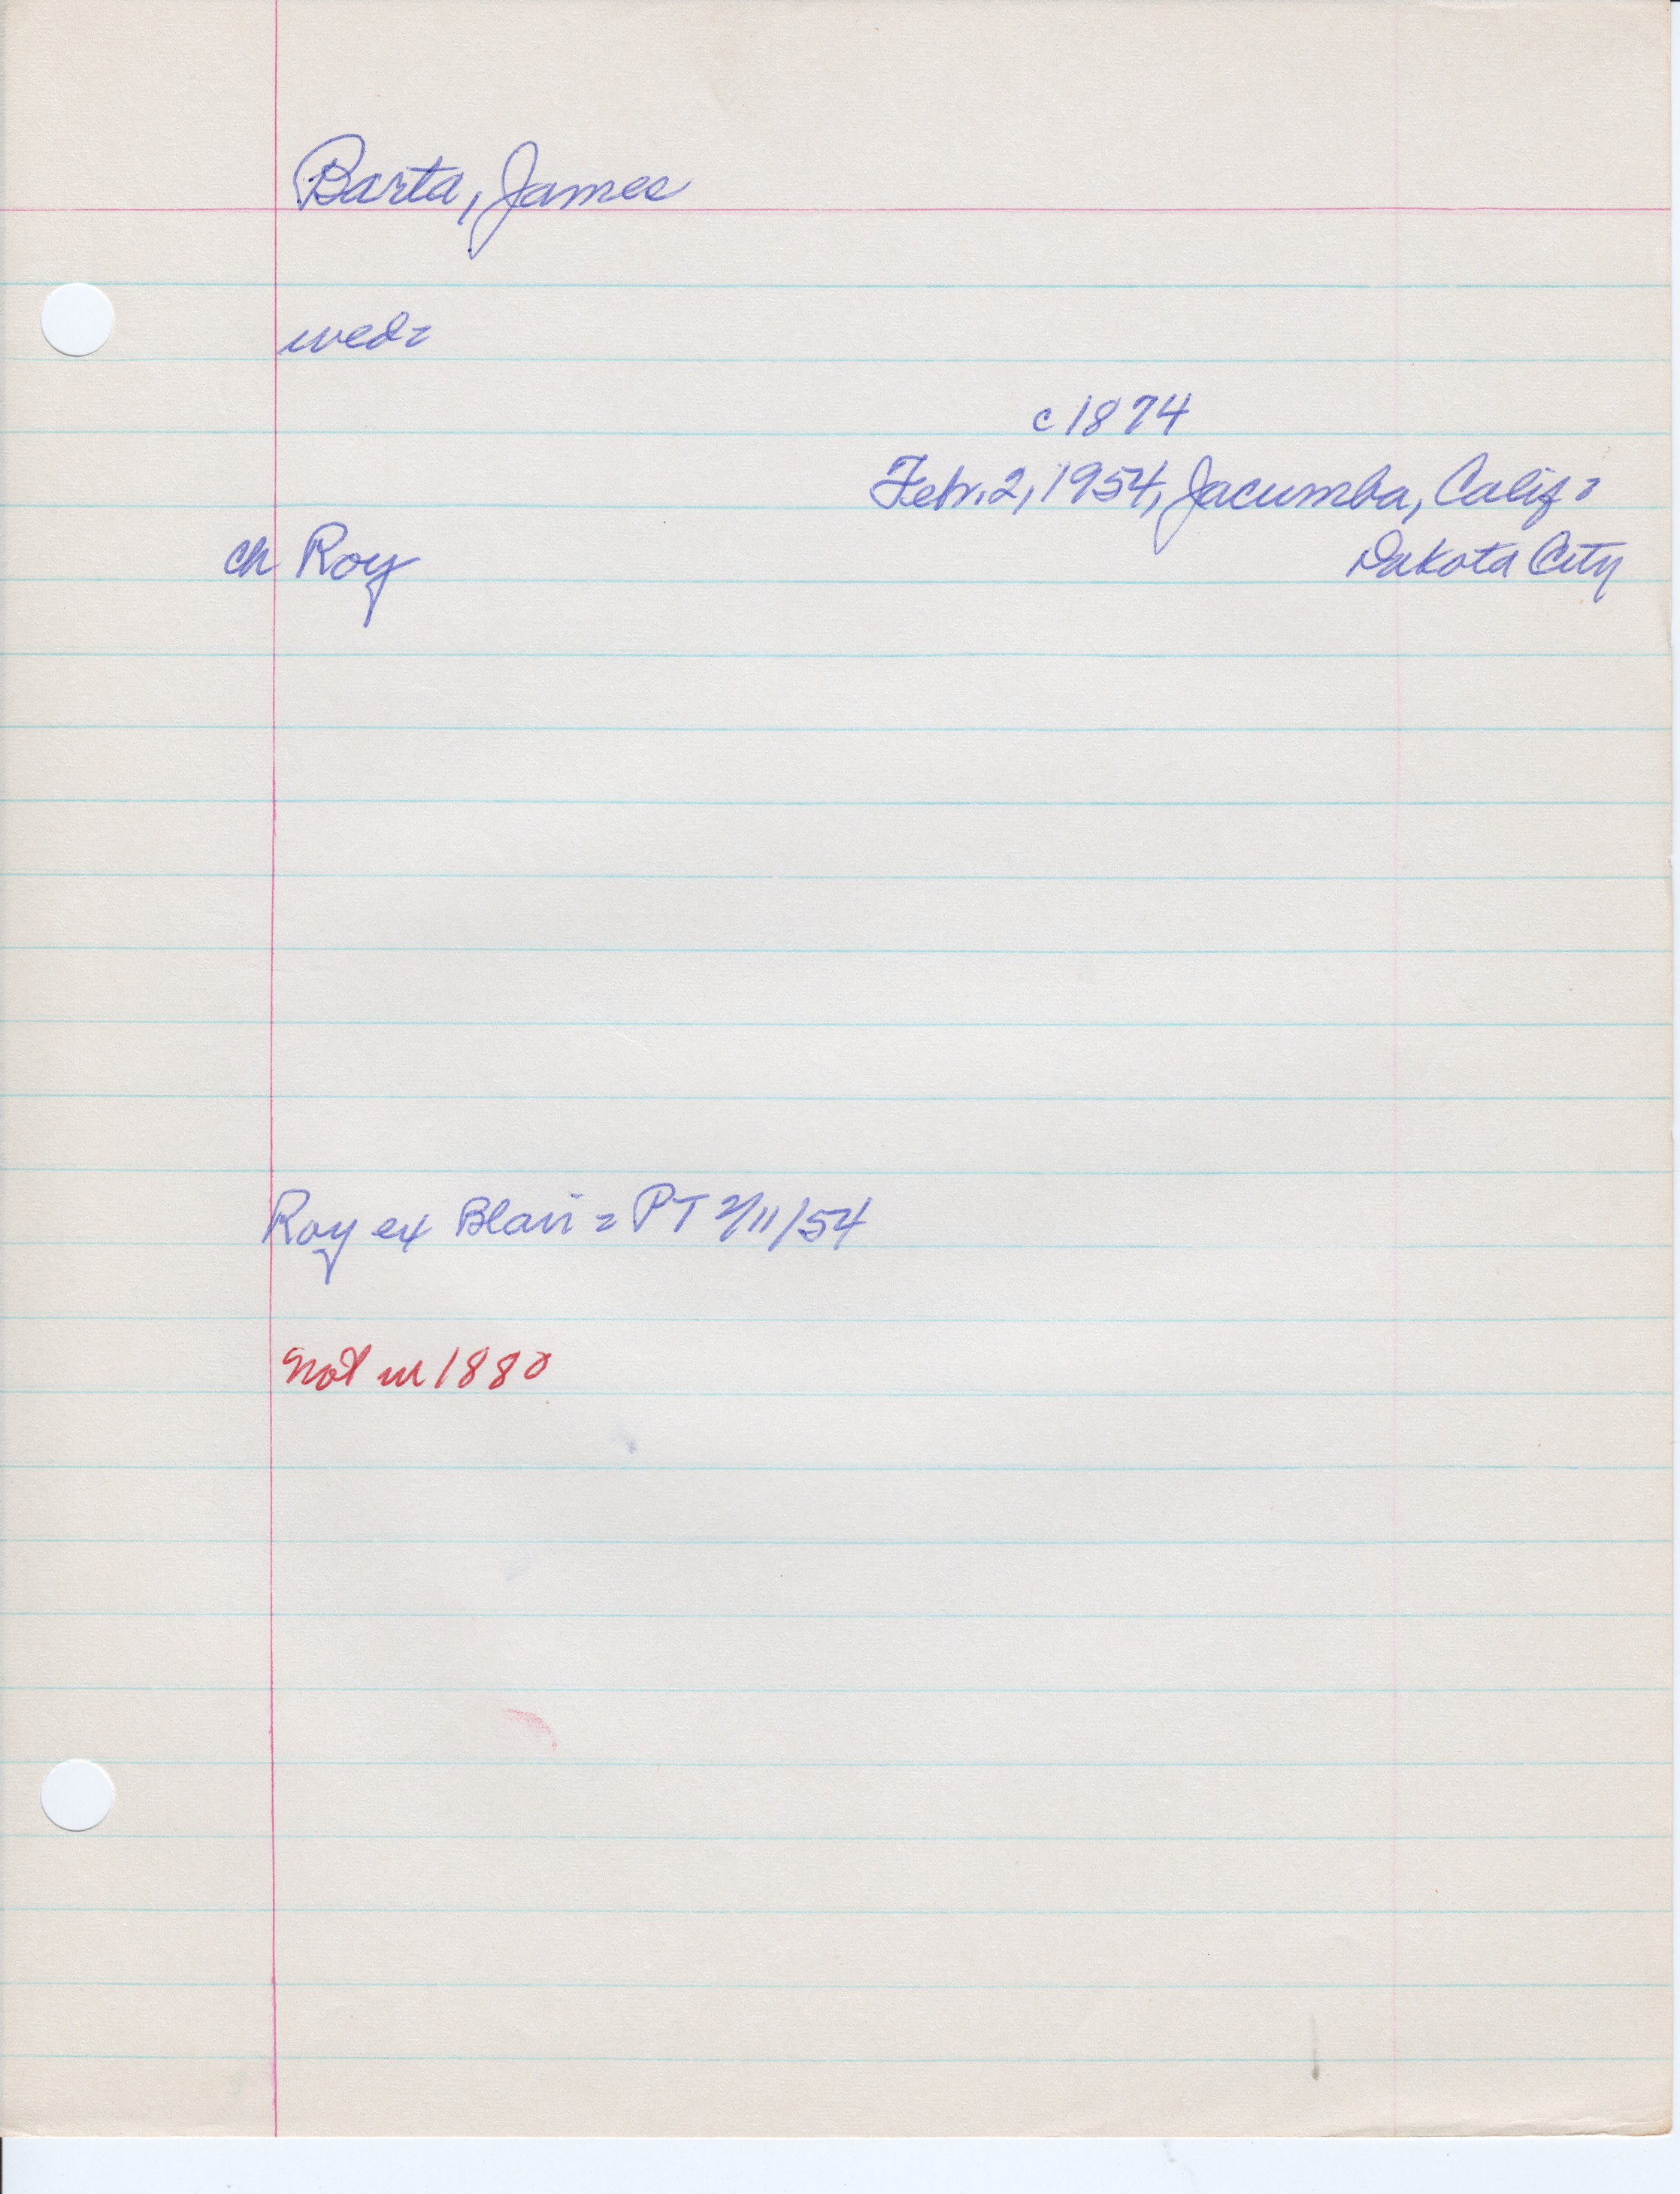 Barta, James
wed=
c 1874
Febr. 2, 1954, Jacumba, Calif =
Dakota City
ch Roy
Roy ex Blair = PT 2/11/54
not in 1880